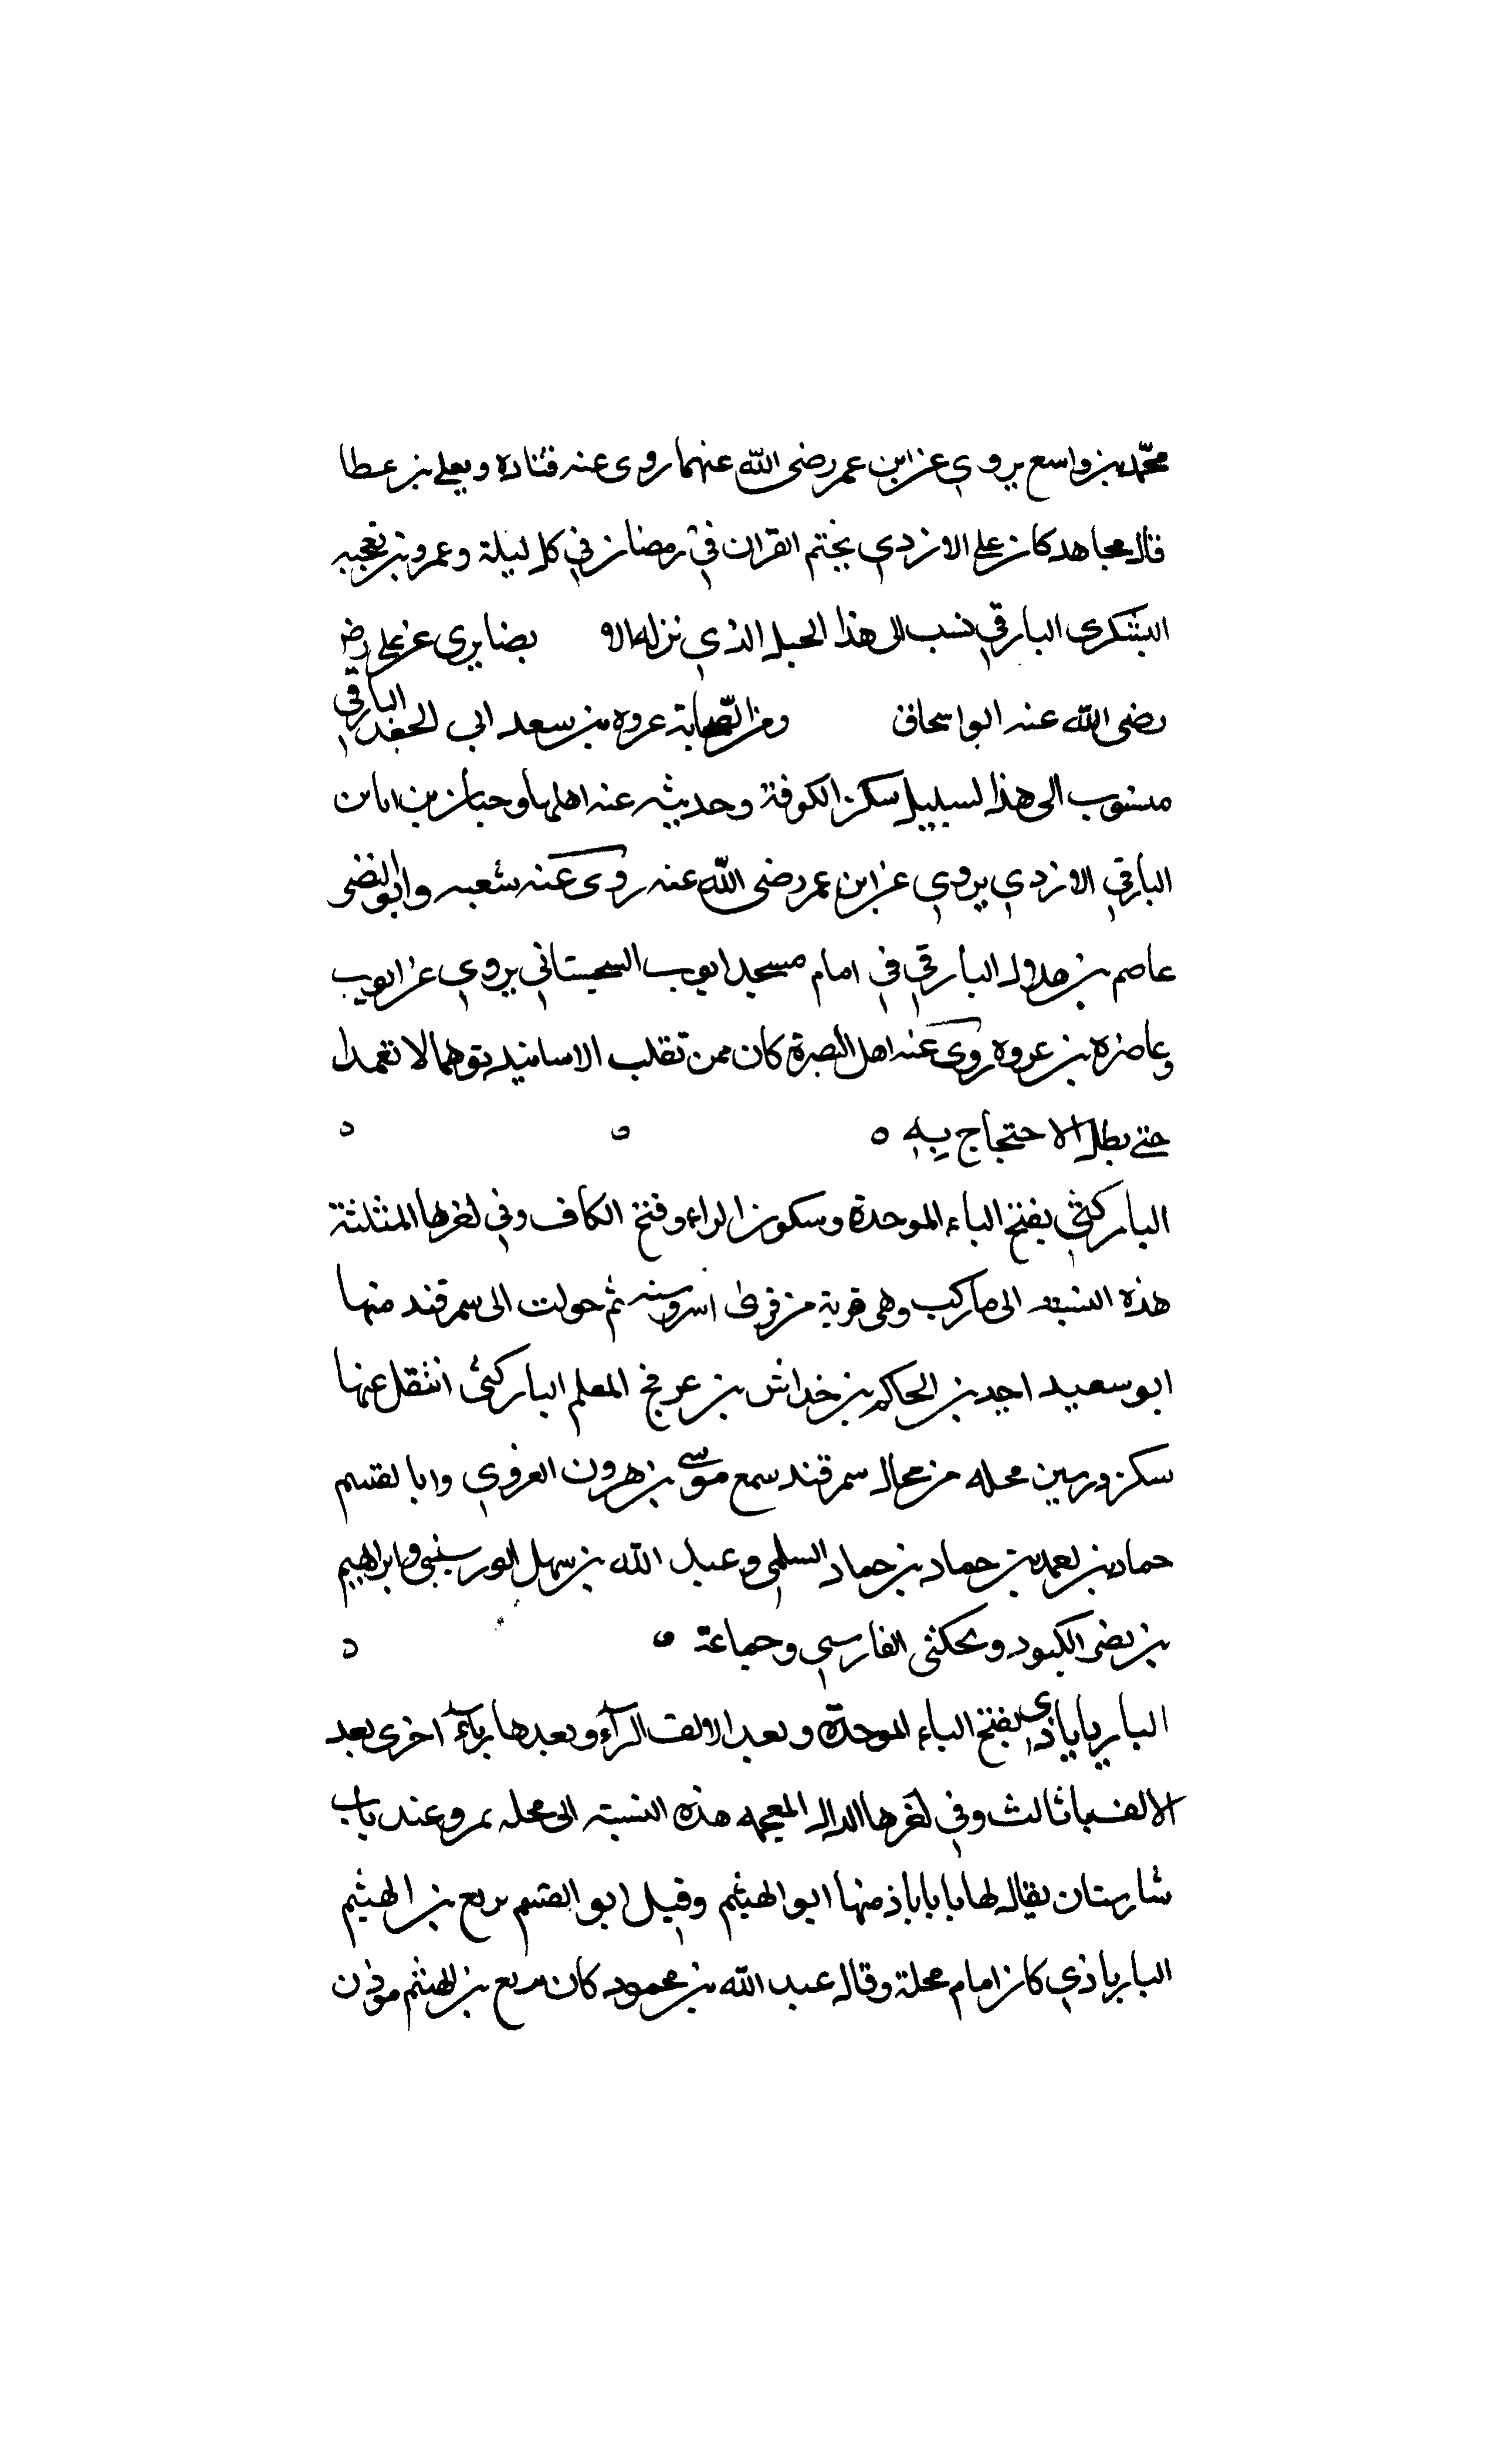 محمد بن واسع يروي عن ابن عمر رضى الله عنهما روى عنه قتاده ويعلى بن عطا
قال مجاهد كان على الازدي يختم القران في رمضان في كل ليلة وعمرو بن نعجبه
اليشكرى البارقي نسب الى هذا الجبل الذي نزله الا بضا يرى عن على رضى
رضى الله عنه ابو اسحاق ومن الصحابة عروه بن سعد ابى الجعد البارقي
منسوب الى هذا لسبيل سكن الكوفة وحديثه عند اهلها وحبان بن ابان
البارقي الازدي يروي عن ابن عمر رضى الله عنه روى عنه شعبه وابو النضى
عاصم بن هلال البارقي في امام مسجد ايوب السجستاني يروي عن ايوب
وعاضره بن عروه روى عنه اهل البصرة كان ممن تقلب الاسانيد توهما لا تعمدا
حتى بطل الاحتجاج به
الباركثي بفتح الباء الموحدة وسكون الراء وفتح الكاف وفي اخرها المثلثة
هذه النسبة الى باركث وهى قرية من قرى اسروسنه ثم حولت الى سمرقند منها
ابو سعيد احيد بن الحاكم بن خداش بن عرفج المعلم الباركثى انتقل عنها
سكن ورسين محله من محال سمرقند سمع موسى بن هرون الفروي وابا لقسم
حماد بن احمد بن حماد بن حماد السلمى وعبد الله بن سهل الورسينى وابراهيم
بن نضر الكبود وىحكثى الفارسي وجماعة
الباريابادي بفتح الباء الموحدة وبعد الالف الرآء وبعدها بآء اخرى بعد
الالف با ثالث وفي اخرها الدال المعجمه هذه النسبة الى محله بمرو عند باب
شارستان يقال لها بابااباذ منها ابو الهيثم وقيل ابو القسم بريع بن الهيثم
البارباذي كان امام محلة وقال عبد الله بن محمود كان بريع بن الهيثم موذن